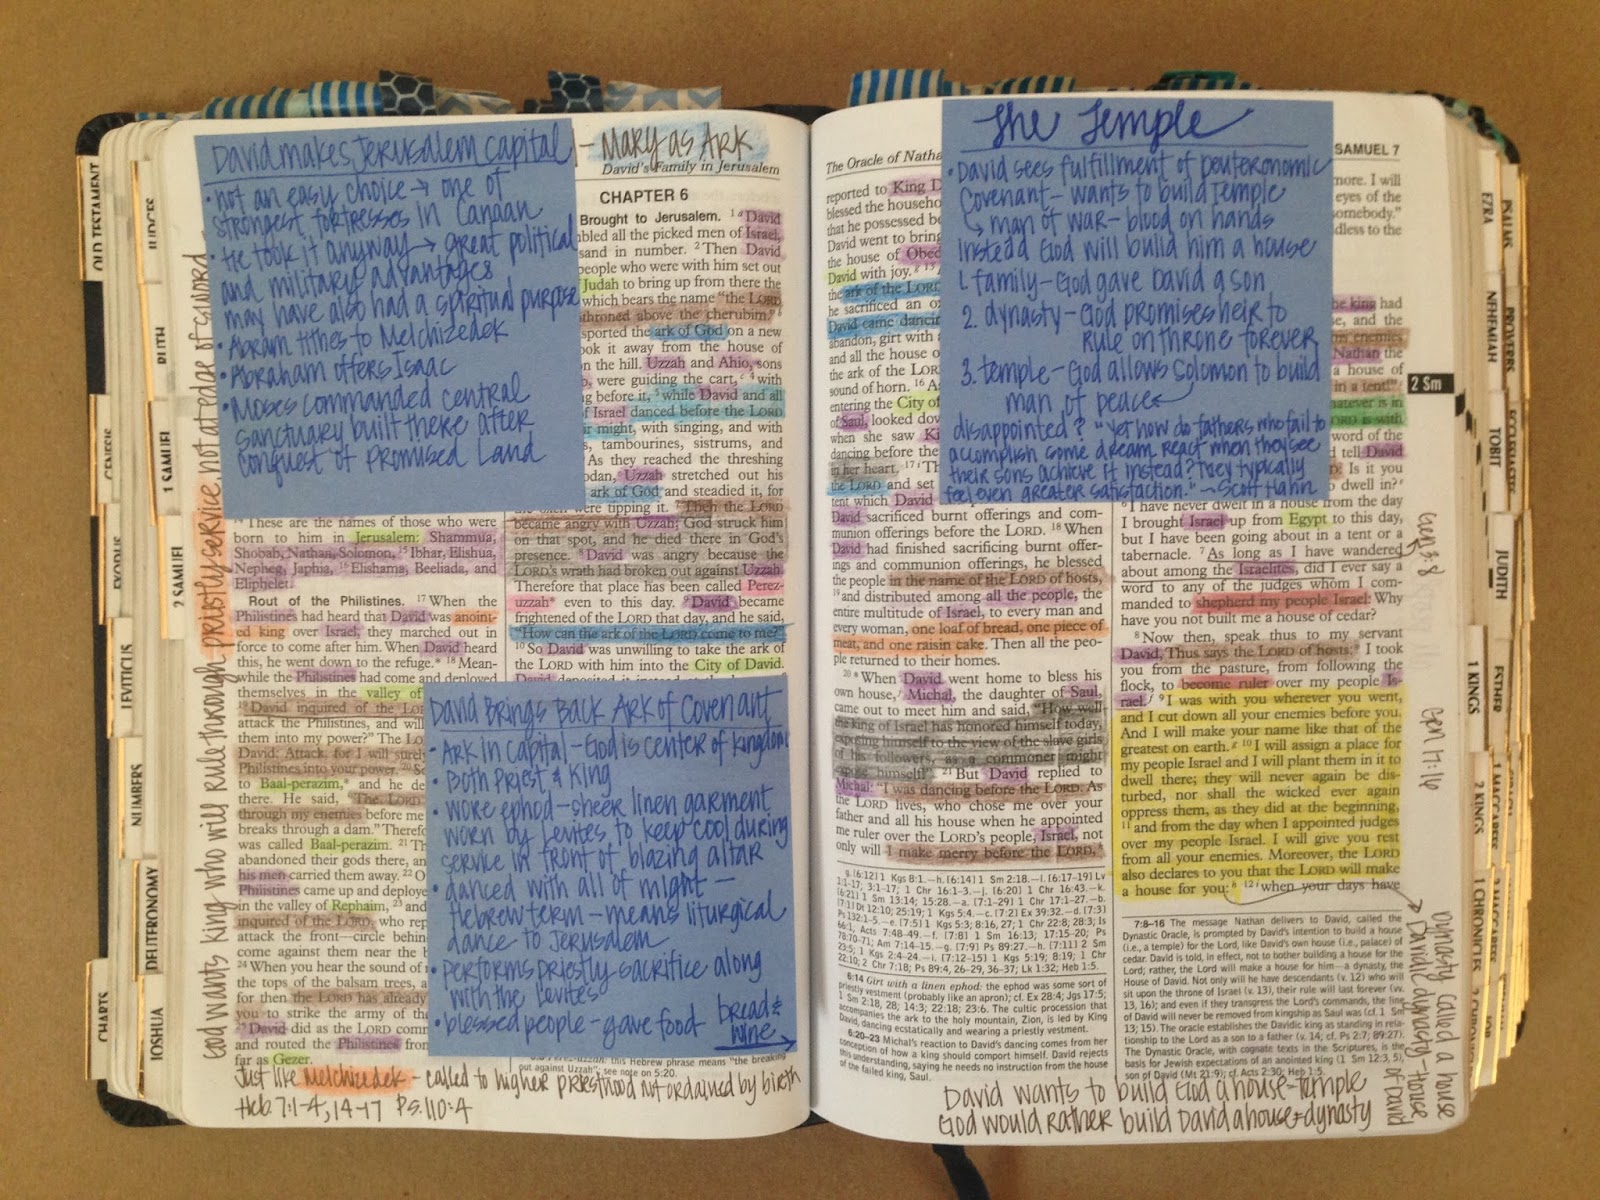 David makes Jerusalem capital
• not an easy choice → one of
strongest fortresses in Canaan
• He took it anyway → great political
and military advantages
may have also had a spiritual purpose
• Abram tithes to Melchizedek
• Abraham offers Isaac
• Moses commanded central
sanctuary built there after
conquest of Promised Land
14 These are the names of those who were
born to him in Jerusalem: Shammua,
Shobab, Nathan, Solomon, 15 Ibhar, Elishua,
Nepheg, Japhia, 16 Elishama, Beeliada, and
Eliphelet.
Rout of the Philistines. 17 When the
Philistines had heard that David was anoint-
ed king over Israel, they marched out in
force to come after him. When David heard
this, he went down to the refuge.* 18 Mean-
while the Philistines had come and deployed
themselves in the valley of
19 David inquired of the
attack the Philistines, and will
them into my power?" The
David: Attack, for I will surely
Philistines into your power. 20
to Baal-perazim,* and he
there. He said, "The LORD
through my enemies before me
breaks through a dam."
was called Baal-perazim. 21
abandoned their gods there, an
his men carried them away. 22
Philistines came up and deploye
in the valley of Rephaim, 23 and
inquired of the LORD, who rep
attack the front—circle behin
come against them near the b
24 When you hear the sound of
the tops of the balsam trees, a
for then the LORD has already
you to strike the army of the
25 David did as the LORD com
and routed the Philistines from
far as Gezer.
God wants King who will rule through priestly service, not at edge of sword
Just like Melchizedek - called to higher priesthood not ordained by birth
Heb. 7:1-4, 14-17 Ps. 110:4
- Mary as Ark
David's Family in Jerusalem
CHAPTER 6
Brought to Jerusalem. 1 a David
bled all the picked men of Israel,
sand in number. 2 Then David
people who were with him set out
Judah to bring up from there the
which bears the name "the LORD
throned above the cherubim."
sported the ark of God on a new
ok it away from the house of
n the hill. Uzzah and Ahio, sons
, were guiding the cart, 4 with
g before it, 5 while David and all
f Israel danced before the LORD
r might, with singing, and with
s, tambourines, sistrums, and
As they reached the threshing
odan, Uzzah stretched out his
ark of God and steadied it, for
were tipping it. 7 Then the LORD
became angry with Uzzah; God struck him
on that spot, and he died there in God's
presence. 8 David was angry because the
LORD's wrath had broken out against Uzzah.
Therefore that place has been called Perez-
uzzah* even to this day. 9 David became
frightened of the LORD that day, and he said,
"How can the ark of the LORD come to me?"
10 So David was unwilling to take the ark of
the LORD with him into the City of David.
David Brings Back Ark of Covenant
• Ark in capital - God is center of kingdom
• Both Priest & King
• wore ephod - sheer linen garment
worn by Levites to keep cool during
service in front of blazing altar
• danced with all of might -
Hebrew term - means liturgical
dance to Jerusalem
• performs priestly sacrifice along
with the Levites
• blessed people - gave food
bread &
wine
this Hebrew phrase means "the breaking
out against Uzzah"; see note on 5:20.
The Oracle of Natha
reported to King D
blessed the househo
that he possessed be
David went to bring
the house of Obed
David with joy.
the ark of the LORD
he sacrificed an o
David came dancin
abandon, girt with
and all the house o
the ark of the LOR
sound of horn. 16 As
entering the City of
of Saul, looked dov
when she saw Ki
dancing before the
in her heart. 17 i Th
the LORD and set
tent which David
David sacrificed burnt offerings and com-
munion offerings before the LORD. 18 When
David had finished sacrificing burnt offer-
ings and communion offerings, he blessed
the people in the name of the LORD of hosts,
19 and distributed among all the people, the
entire multitude of Israel, to every man and
every woman, one loaf of bread, one piece of
meat, and one raisin cake. Then all the peo-
ple returned to their homes.
20 * When David went home to bless his
own house, Michal, the daughter of Saul,
came out to meet him and said, "How well
the king of Israel has honored himself today,
exposing himself to the view of the slave girls
of his followers, as a commoner might
expose himself!" 21 But David replied to
Michal: "I was dancing before the LORD. As
the LORD lives, who chose me over your
father and all his house when he appointed
me ruler over the LORD's people, Israel, not
only will I make merry before the LORD,
6:14 Girt with a linen ephod: the ephod was some sort of
priestly vestment (probably like an apron); cf. Ex 28:4; Jgs 17:5;
1 Sm 2:18, 28; 14:3; 22:18; 23:6. The cultic procession that
accompanies the ark to the holy mountain, Zion, is led by King
David, dancing ecstatically and wearing a priestly vestment.
6:20–23 Michal's reaction to David's dancing comes from her
conception of how a king should comport himself. David rejects
this understanding, saying he needs no instruction from the house
of the failed king, Saul.
The Temple
• David sees fulfillment of Deuteronomic
Covenant - wants to build Temple
↳ man of war - blood on hands
instead God will build him a house
1. family - God gave David a son
2. dynasty - God promises heir to
rule on throne forever
3. temple - God allows Solomon to build
man of peace
disappointed? "Yet how do fathers who fail to
accomplish some dream react when they see
their sons achieve it instead? They typically
feel even greater satisfaction." - Scott Hahn
SAMUEL 7
more. I will
eyes of the
omebody."
dless to the
he king had
e, and the
n enemies
Nathan the
a house of
in a tent!"
hatever is in
ORD is with
word of the
tell David
Is it you
o dwell in?
6 I have never dwelt in a house from the day
I brought Israel up from Egypt to this day,
but I have been going about in a tent or a
tabernacle. 7 As long as I have wandered
about among the Israelites, did I ever say a
word to any of the judges whom I com-
manded to shepherd my people Israel: Why
have you not built me a house of cedar?
8 Now then, speak thus to my servant
David, Thus says the LORD of hosts: I took
you from the pasture, from following the
flock, to become ruler over my people Is-
rael. 9 I was with you wherever you went,
and I cut down all your enemies before you.
And I will make your name like that of the
greatest on earth. 10 I will assign a place for
my people Israel and I will plant them in it to
dwell there; they will never again be dis-
turbed, nor shall the wicked ever again
oppress them, as they did at the beginning,
11 and from the day when I appointed judges
over my people Israel. I will give you rest
from all your enemies. Moreover, the LORD
also declares to you that the LORD will make
a house for you: 12 when your days have
7:8–16 The message Nathan delivers to David, called the
Dynastic Oracle, is prompted by David's intention to build a house
(i.e., a temple) for the Lord, like David's own house (i.e., palace) of
cedar. David is told, in effect, not to bother building a house for the
Lord; rather, the Lord will make a house for him—a dynasty, the
House of David. Not only will he have descendants (v. 12) who will
sit upon the throne of Israel (v. 13), their rule will last forever (vv.
13, 16); and even if they transgress the Lord's commands, the line
of David will never be removed from kingship as Saul was (cf. 1 Sm
13; 15). The oracle establishes the Davidic king as standing in rela-
tionship to the Lord as a son to a father (v. 14; cf. Ps 2:7; 89:27).
The Dynastic Oracle, with cognate texts in the Scriptures, is the
basis for Jewish expectations of an anointed king (1 Sm 12:3, 5),
son of David (Mt 21:9); cf. Acts 2:30; Heb 1:5.
David wants to build God a house - temple
God would rather build David a house - dynasty
Gen 3:8
Gen 17:16
Dynasty called a house
Davidic dynasty - House
of David
2 Sm
OLD TESTAMENT
GENESIS
EXODUS
LEVITICUS
NUMBERS
DEUTERONOMY
JOSHUA
CHARTS
JUDGES
RUTH
1 SAMUEL
2 SAMUEL
EZRA
NEHEMIAH
TOBIT
JUDITH
ESTHER
1 MACCABEES
2 MACCABEES
JOB
PSALMS
PROVERBS
ECCLESIASTES
1 KINGS
2 KINGS
1 CHRONICLES
2 CHRONICLES